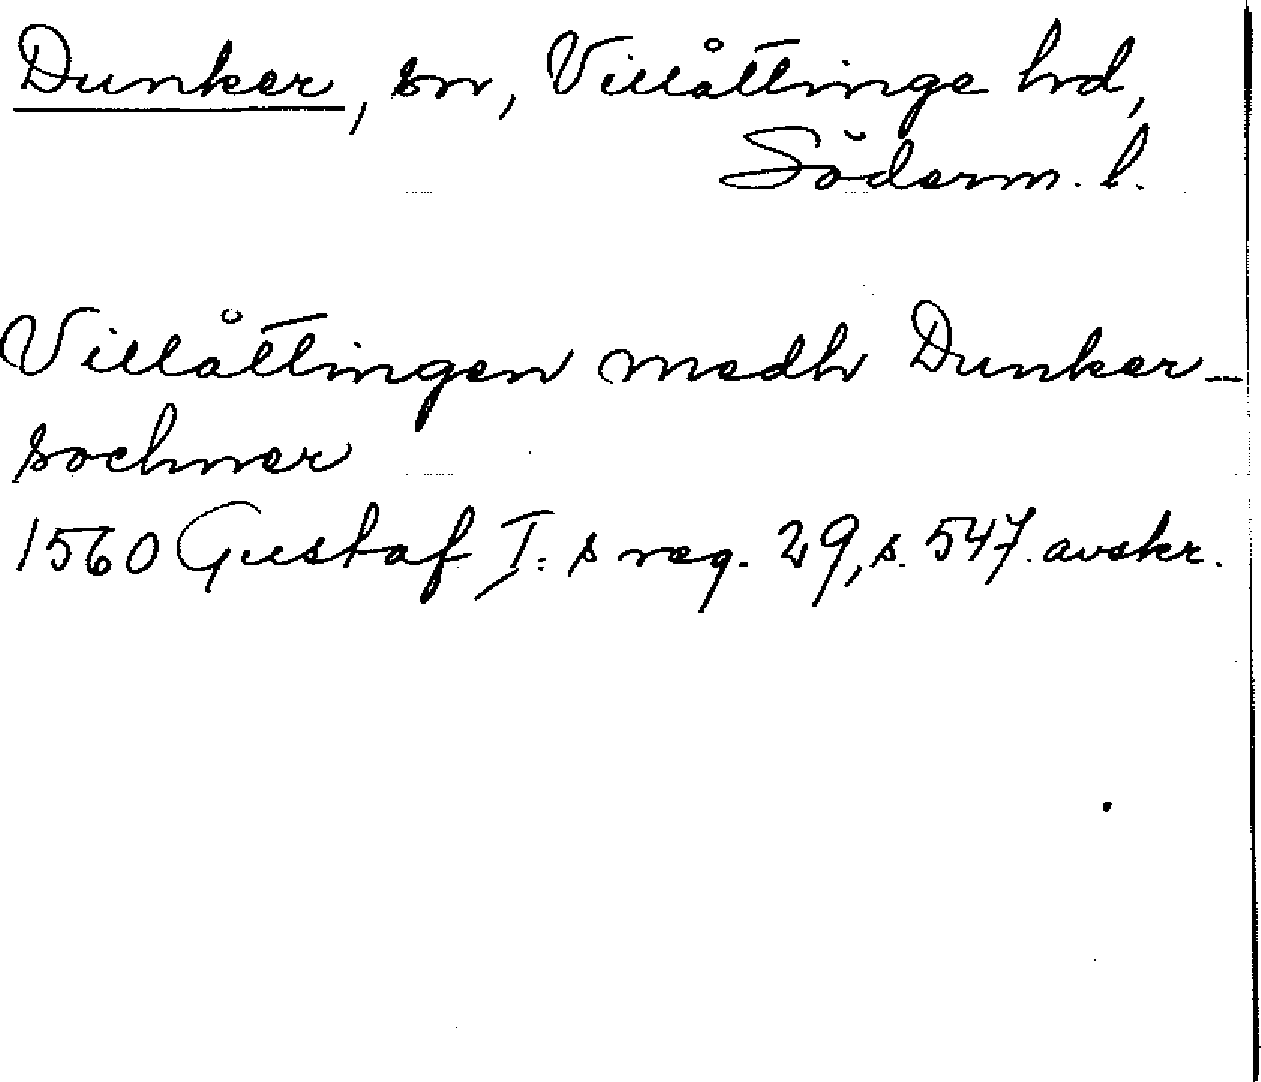 Dunker, sn, Villåttinge hd,
Söderm. l.
Villåttingen medh Dunker-
sochner
1560 Gustaf I:s reg. 29, s. 547. avskr.